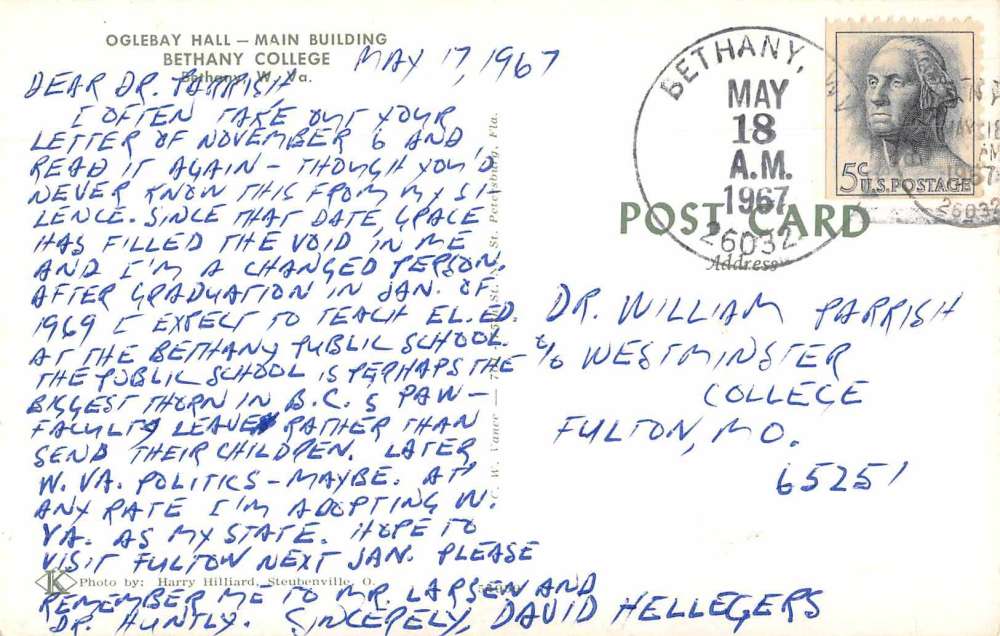 OGLEBAY HALL — MAIN BUILDING
BETHANY COLLEGE
Bethany, W. Va.
MAY 17, 1967
DEAR DR. PARRISH
I OFTEN TAKE OUT YOUR
LETTER OF NOVEMBER 6 AND
READ IT AGAIN - THOUGH YOU'D
NEVER KNOW THIS FROM MY SI-
LENCE. SINCE THAT DATE, GRACE
HAS FILLED THE VOID IN ME
AND I'M A CHANGED PERSON.
AFTER GRADUATION IN JAN. OF
1969 I EXPECT TO TEACH EL. ED.
AT THE BETHANY PUBLIC SCHOOL.
THE PUBLIC SCHOOL IS PERHAPS THE
BIGGEST THORN IN B.C.'S PAW -
FACULTY LEAVE RATHER THAN
SEND THEIR CHILDREN. LATER
W. VA. POLITICS - MAYBE. AT
ANY RATE I'M ADOPTING W.
VA. AS MY STATE. HOPE TO
VISIT FULTON NEXT JAN. PLEASE
REMEMBER ME TO MR. LARSEN AND
DR. HUNTLY. SINCERELY, DAVID HELLEGERS
K Photo by: Harry Hilliard, Steubenville, O.
C. W. Vance St. Petersburg, Fla.
BETHANY, W.
MAY
18
A.M.
1967
26032
5¢ U.S. POSTAGE
1967
26032
POST CARD
Address
DR. WILLIAM PARRISH
% WESTMINSTER
COLLEGE
FULTON, MO.
65251